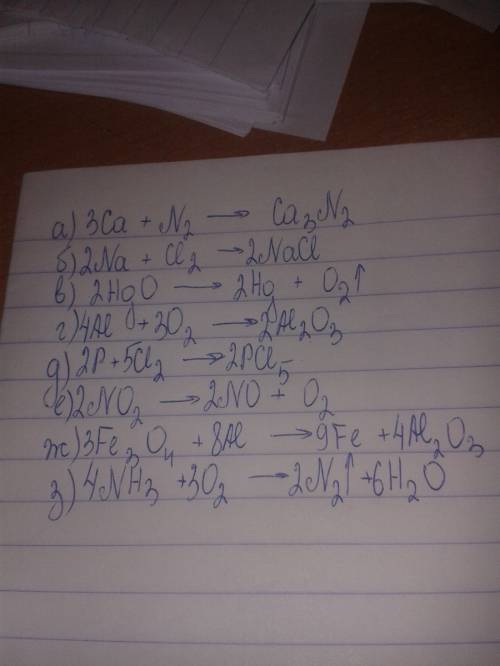 а) 3Ca + N₂ → Ca₃N₂
б) 2Na + Cl₂ → 2NaCl
в) 2HgO → 2Hg + O₂↑
г) 4Al + 3O₂ → 2Al₂O₃
д) 2P + 5Cl₂ → 2PCl₅
е) 2NO₂ → 2NO + O₂
ж) 3Fe₃O₄ + 8Al → 9Fe + 4Al₂O₃
з) 4NH₃ + 3O₂ → 2N₂↑ + 6H₂O